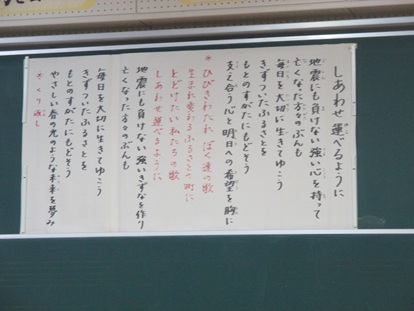 しあわせ運べるように
地震にも負けない強い心を持って
亡くなった方々のぶんも
毎日を大切に生きてゆこう
きずついたふるさとを
もとのすがたにもどそう
支え合う心と明日への希望を胸に
＊ひびきわたれ ぼく達の歌
生まれ変わるふるさとの町に
とどけたい私たちの歌
しあわせ運べるように
地震にも負けない強いきずなを作り
亡くなった方々のぶんも
毎日を大切に生きてゆこう
きずついたふるさとを
もとのすがたにもどそう
やさしい春の光のような未来を夢み
＊くり返し